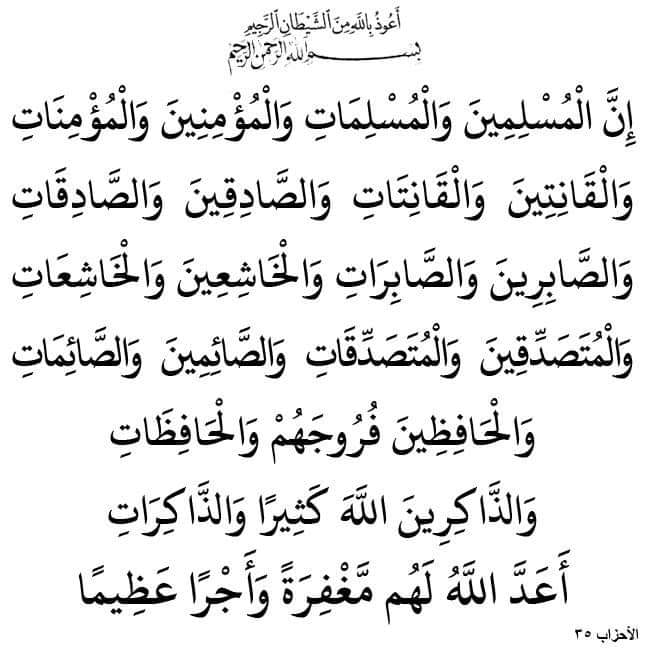 أَعُوذُ بِاللَّهِ مِنَ الشَّيْطَانِ الرَّجِيمِ
بِسْمِ اللَّهِ الرَّحْمَنِ الرَّحِيمِ
إِنَّ الْمُسْلِمِينَ وَالْمُسْلِمَاتِ وَالْمُؤْمِنِينَ وَالْمُؤْمِنَاتِ
وَالْقَانِتِينَ وَالْقَانِتَاتِ وَالصَّادِقِينَ وَالصَّادِقَاتِ
وَالصَّابِرِينَ وَالصَّابِرَاتِ وَالْخَاشِعِينَ وَالْخَاشِعَاتِ
وَالْمُتَصَدِّقِينَ وَالْمُتَصَدِّقَاتِ وَالصَّائِمِينَ وَالصَّائِمَاتِ
وَالْحَافِظِينَ فُرُوجَهُمْ وَالْحَافِظَاتِ
وَالذَّاكِرِينَ اللَّهَ كَثِيرًا وَالذَّاكِرَاتِ
أَعَدَّ اللَّهُ لَهُم مَّغْفِرَةً وَأَجْرًا عَظِيمًا
الأحزاب ٣٥